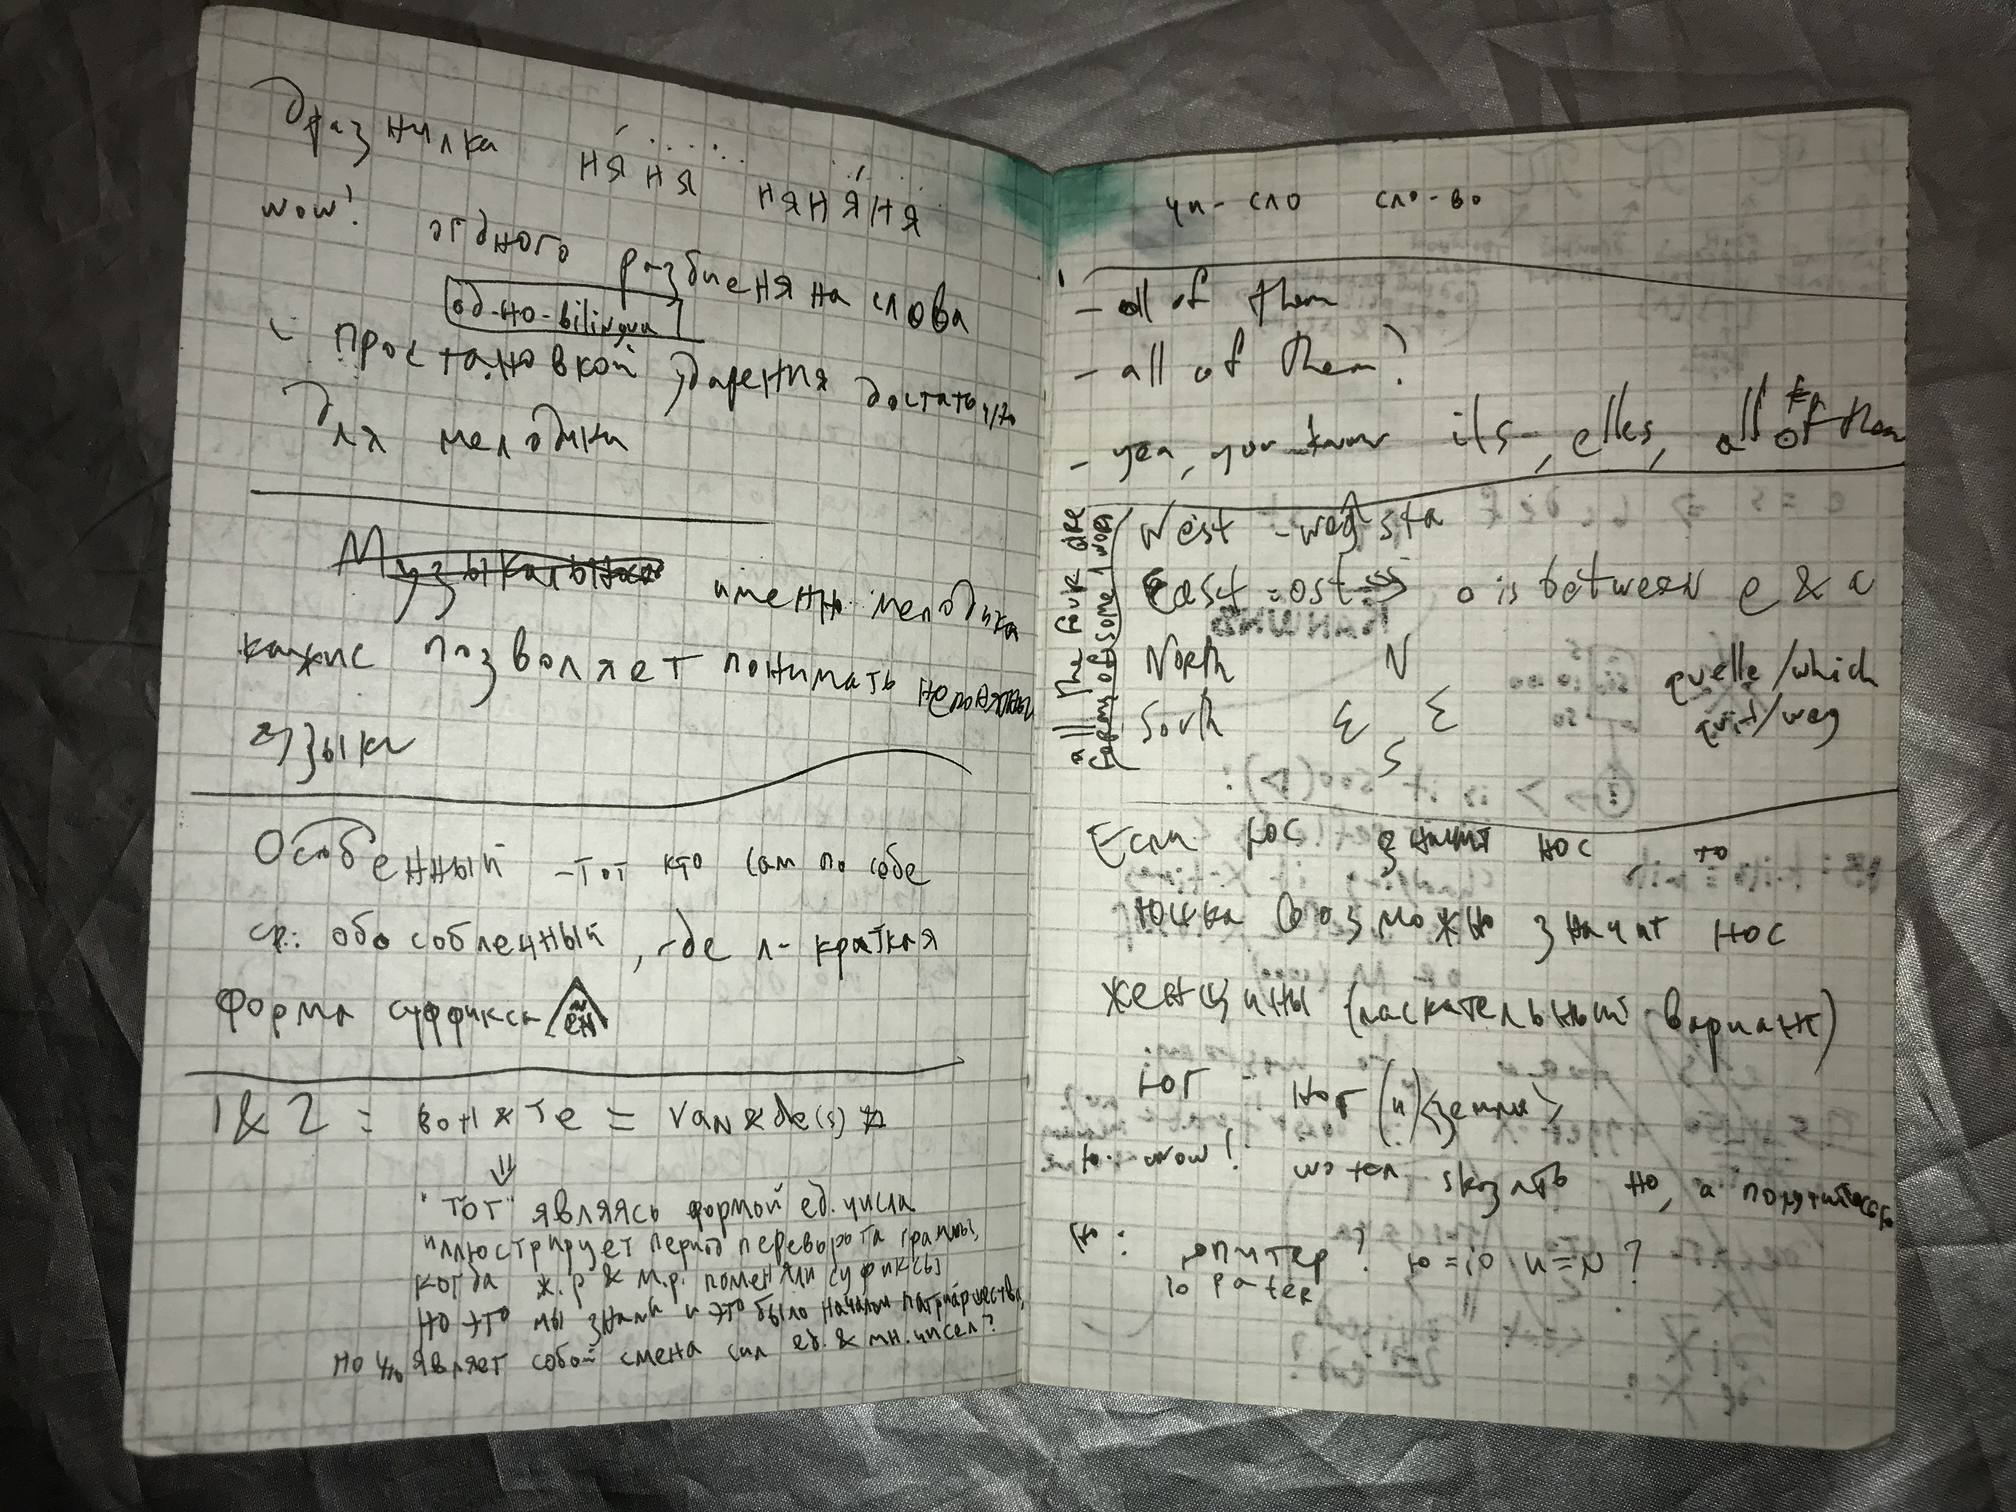 дразнилка ня́ ня няня́ня
wow! одного разбиеня на слова
од-но-bilingua
с простановкой ударения достаточно
для мелодики
Музыкально именно мелодика
позволяет понимать
языки
Особенный - тот кто сам по себе
ср: обособленный, где л - краткая
форма суффикса ен
1 & 2 = вон & те = van & de(s)
⇓
"тот" являясь формой ед. числа
иллюстрирует период переворота граммы,
когда ж.р & м.р. поменяли суфиксы
но это мы знали и это было началом патриаршества,
но что являет собой смена сил ед. & мн. чисел?
чи- сло сло-во
- all of them
- all of them?
- yea, you know ils, elles, all of them
all the four are
forms of some 1 word
West - weg sta
East = ost => o is between e & a
North N quelle/which
South Σ Σ quit/weg
S
Если юс значит нос то
юшка возможно значит нос
женщины (ласкательный вариант)
юг ног (и) <земля>
wow! хотел skазать но, а получилось
Ю: юпитер? ю=io и=N?
io pater